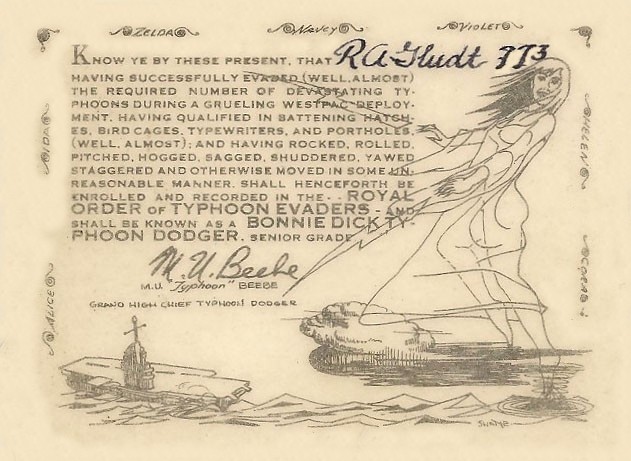 ZELDA NANCY VIOLET
KNOW YE BY THESE PRESENT, THAT R A Fludt 773
HAVING SUCCESSFULLY EVADED (WELL, ALMOST)
THE REQUIRED NUMBER OF DEVASTATING TY-
PHOONS DURING A GRUELING WESTPAC DEPLOY-
MENT, HAVING QUALIFIED IN BATTENING HATCH-
ES, BIRD CAGES, TYPEWRITERS, AND PORTHOLES,
(WELL, ALMOST); AND HAVING ROCKED, ROLLED,
PITCHED, HOGGED, SAGGED, SHUDDERED, YAWED
STAGGERED AND OTHERWISE MOVED IN SOME UN-
REASONABLE MANNER. SHALL HENCEFORTH BE
ENROLLED AND RECORDED IN THE - - ROYAL
ORDER OF TYPHOON EVADERS - AND
SHALL BE KNOWN AS A BONNIE DICK TY-
PHOON DODGER, SENIOR GRADE
M. U. Beebe
M.U. "Typhoon" BEEBE
GRAND HIGH CHIEF TYPHOON DODGER
IDA
ALICE
HELEN
CORA